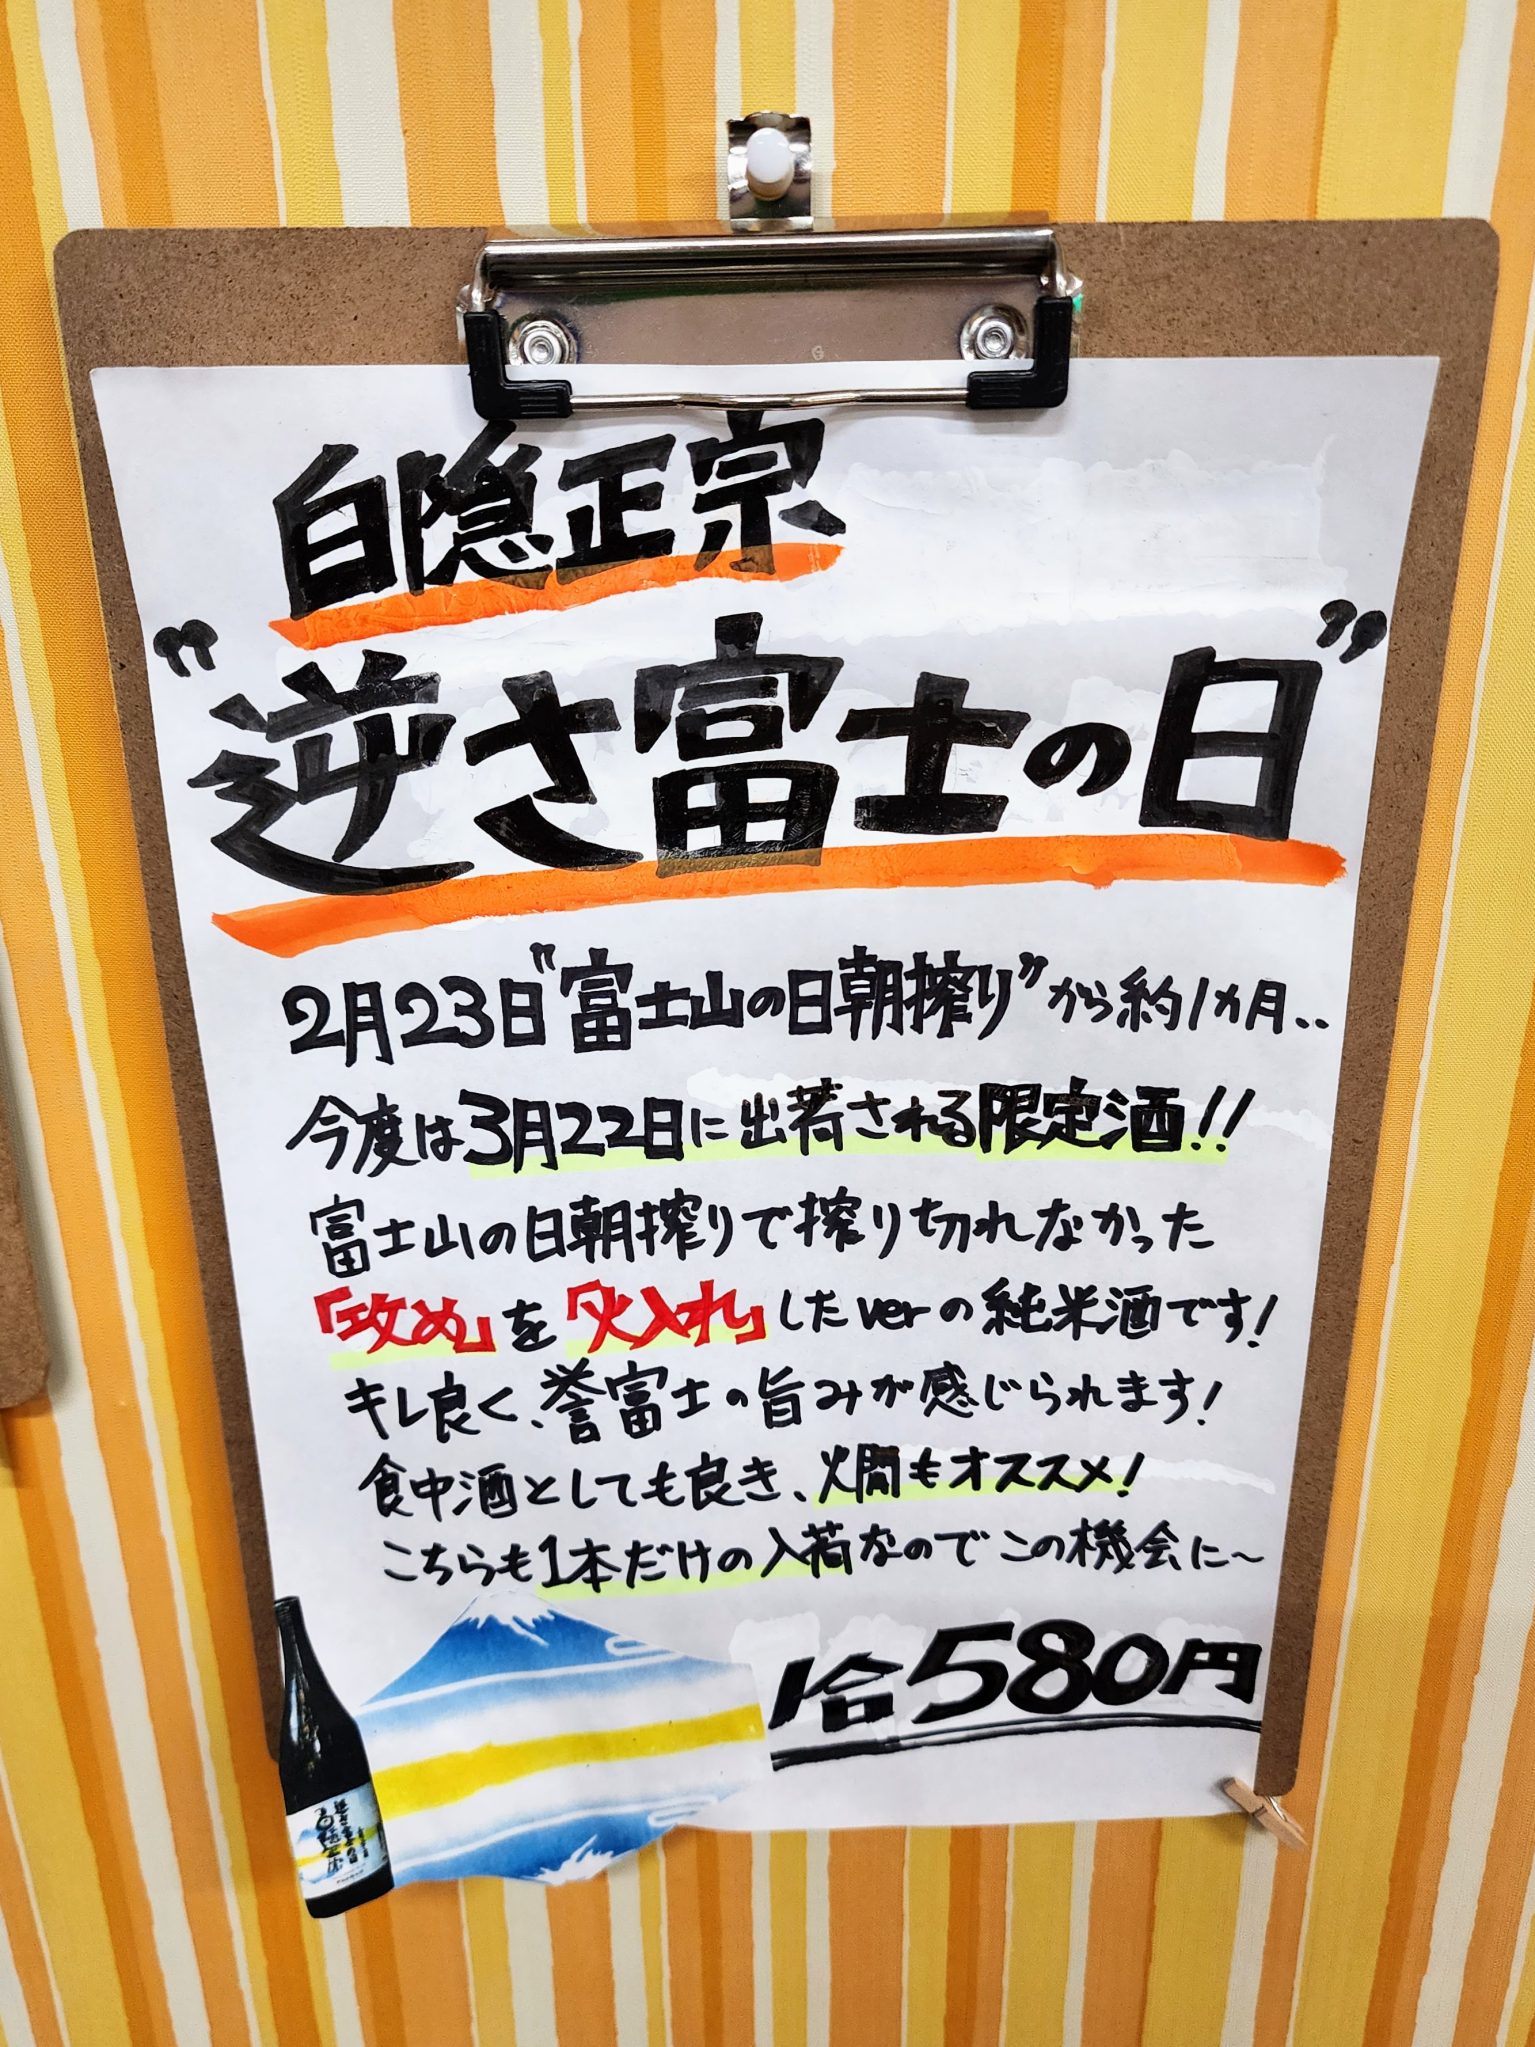 白隠正宗
"逆さ富士の日"
2月23日"富士山の日朝搾り"から約1ヵ月..
今度は3月22日に出荷される限定酒!!
富士山の日朝搾りで搾り切れなかった
「攻め」を「火入れ」したverの純米酒です!
キレ良く、誉富士の旨みが感じられます!
食中酒としても良き、燗もオススメ!
こちらも1本だけの入荷なのでこの機会に〜
1合580円
逆さ富士の日
白隠正宗